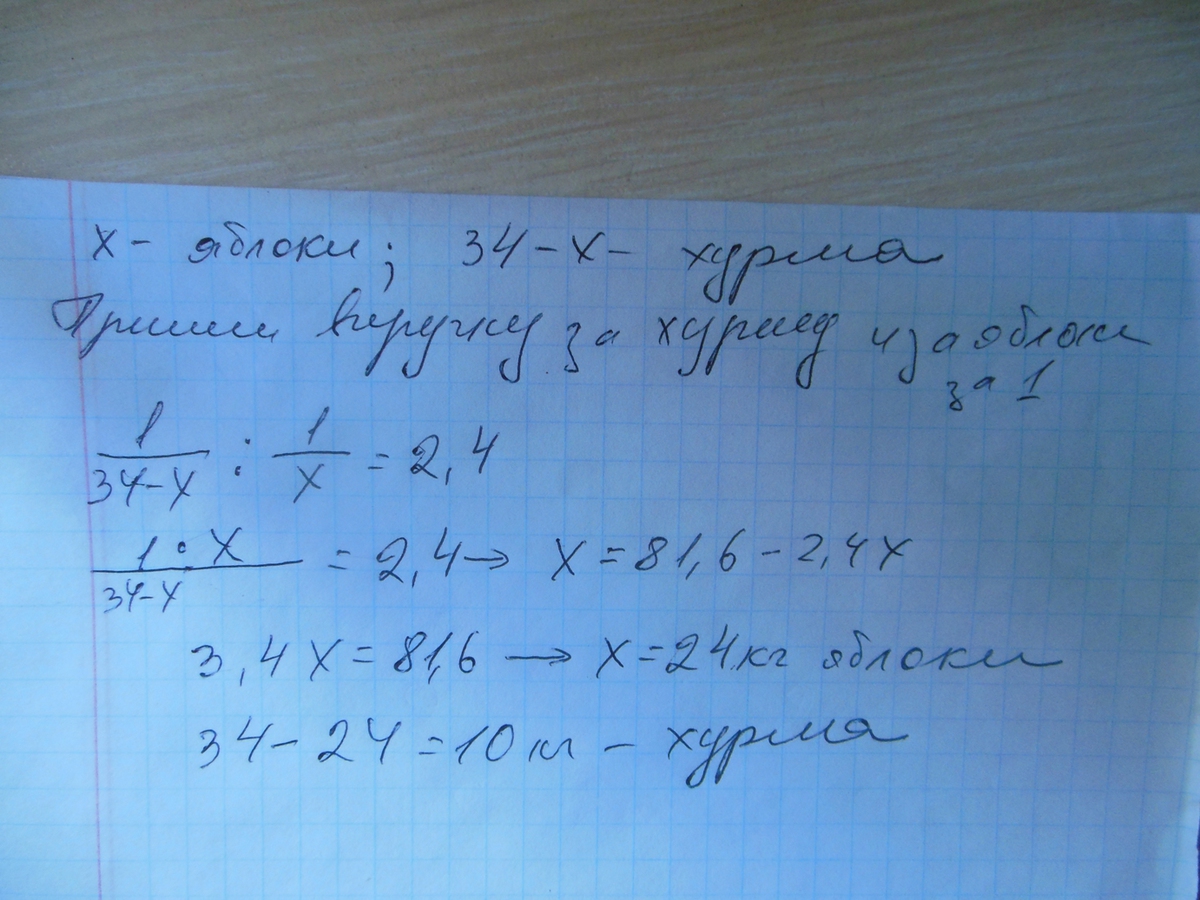 x - яблоки; 34 - x - хурма
Примем выручку за хурму и за яблоки
за 1
1/(34-x) : 1/x = 2,4
1·x/(34-x) = 2,4 → x = 81,6 - 2,4x
3,4x = 81,6 → x = 24 кг яблоки
34 - 24 = 10 кг - хурма